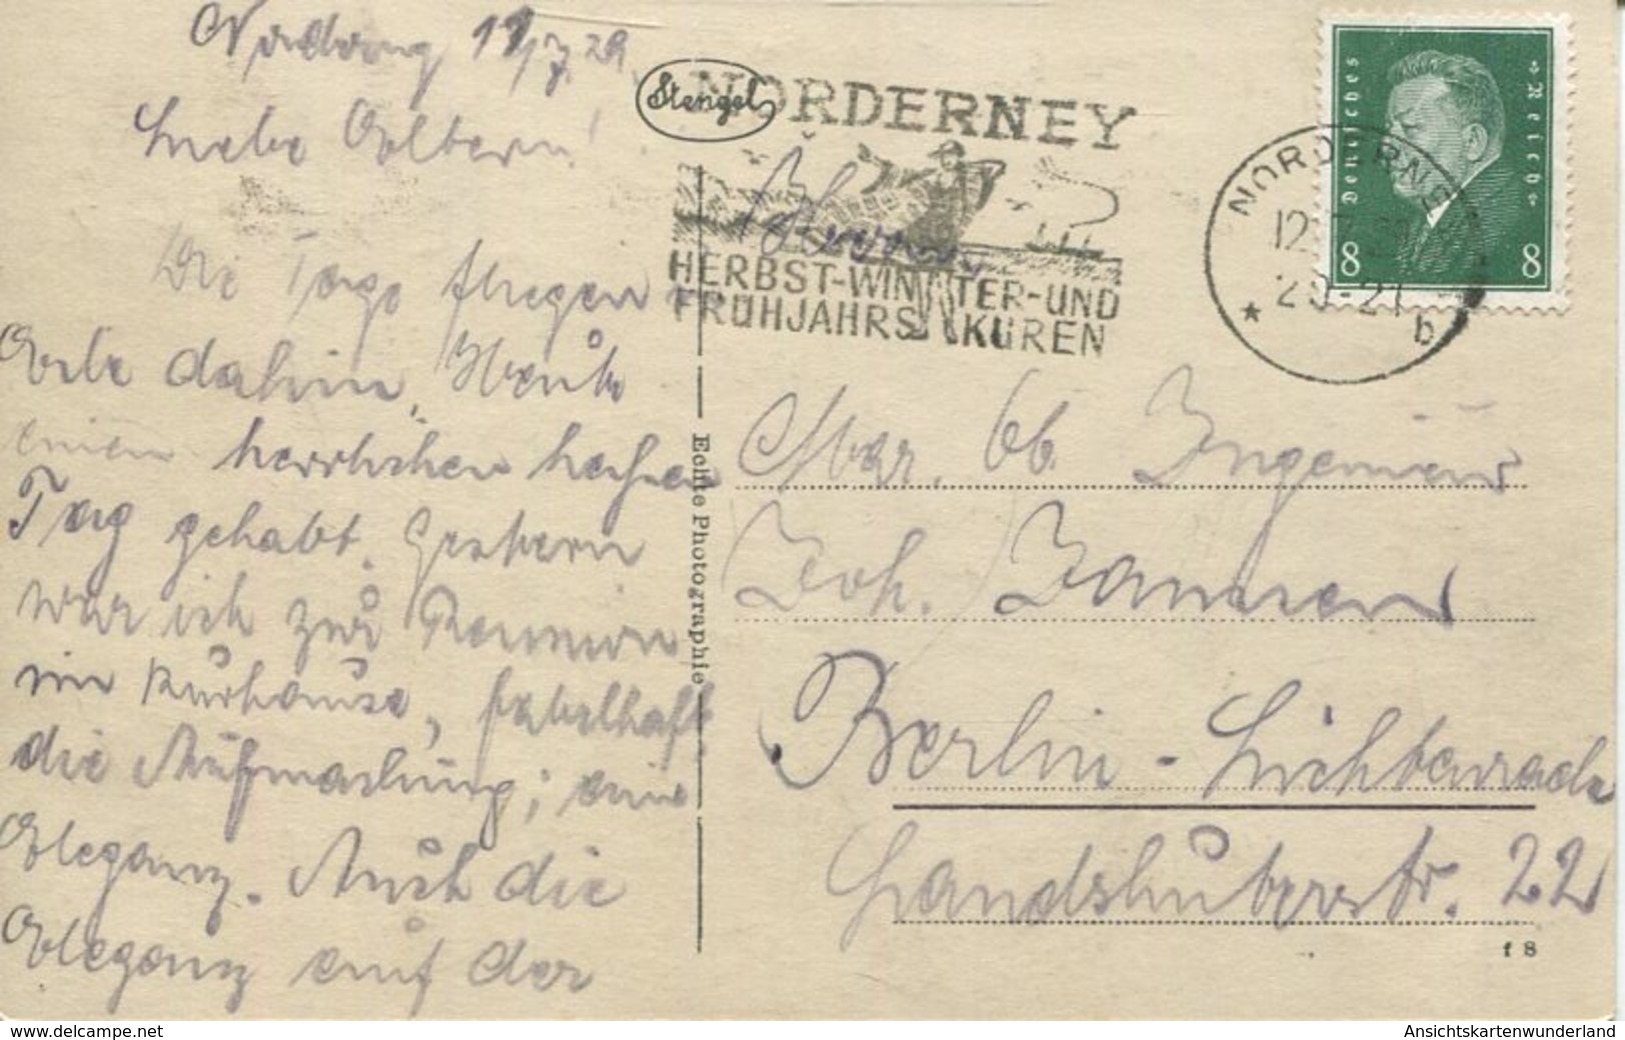 Norderney 11/7.29.
Liebe Eltern!
Die Tage fliegen
Eile dahin, Heute
einen herrlichen heißen
Tag gehabt. Gestern
war ich zur Reunion
im Kurhause, fabelhaft
die Aufmachung; eine
Eleganz. Auch die
Eleganz auf der
Stengel
NORDERNEY
HERBST-WINTER-UND
FRÜHJAHRS KUREN
Echte Photographie
Deutsches Reich
8 8
NORDERNEY
12.7.
20-21
* b
Ingenieur
Joh. Janssen
Berlin-Lichtenrade
Landshuterstr. 22
f 8
www.delcampe.net
Ansichtskartenwunderland